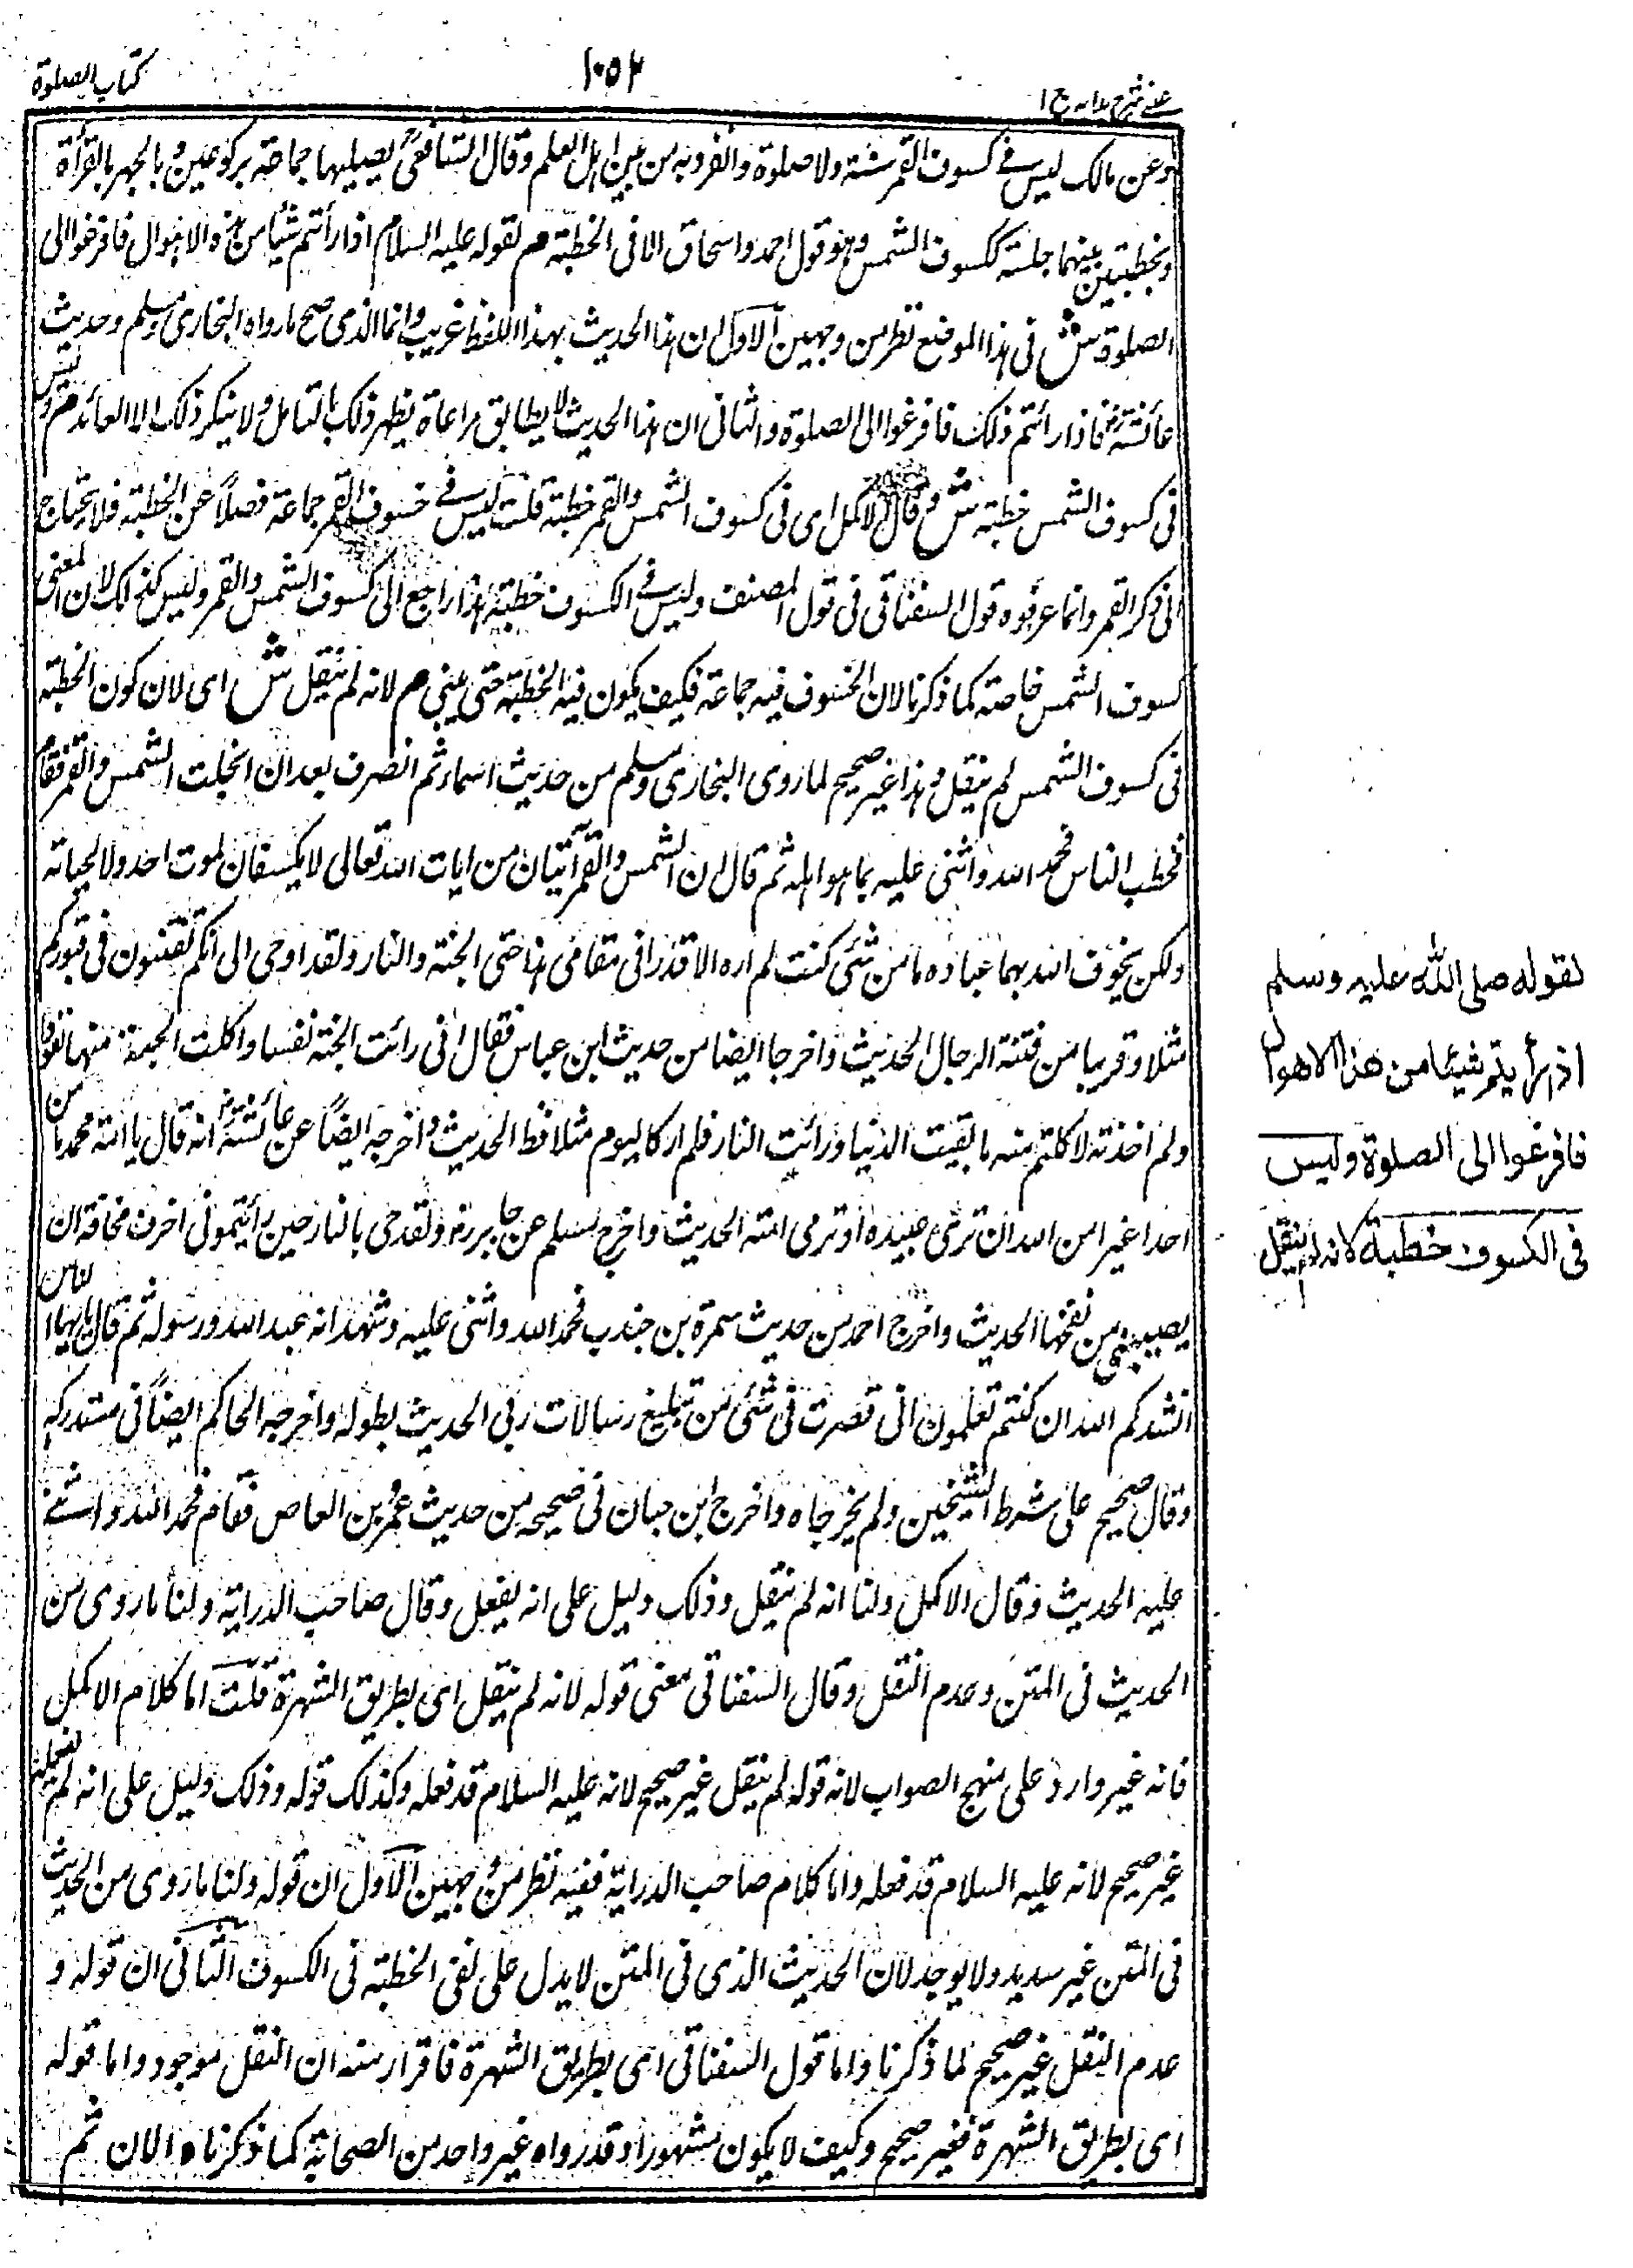 عينى شرح هدايه ج ١
١٠٥٢
كتاب الصلوة
وعن مالك ليس في كسوف القمر سنة ولا صلوة وانفرد به من بين اهل العلم وقال الشافعى يصليها جماعة بركوعين وبالجهر بالقرأة
وبخطبتين بينهما جلسة ككسوف الشمس وهو قول احمد واسحاق الا فى الخطبة م لقوله عليه السلام اذا رأيتم شيأ من هذه الاهوال فافزعوا الى
الصلوة ش فى هذا الموضع نظر من وجهين الاول ان هذا الحديث بهذا اللفظ غريب وانما الذى صح ما رواه البخارى ومسلم وحديث
عائشة رض فاذا رأيتم ذلك فافزعوا الى الصلوة والثانى ان هذا الحديث لا يطابق مراعاة يظهر ذلك بالتامل ولا ينكر ذلك الا المعاند م وليس
فى كسوف الشمس خطبة ش وقال الاكمل اى فى كسوف الشمس والقمر خطبة قلت ليس فے خسوف القمر جماعة فضلاً عن الخطبة فلا يحتاج
الى ذكر القمر وانما غرهم وه قول السغناقى فى قول المصنف وليس فے الكسوف خطبة هذا راجع الى كسوف الشمس والقمر وليس كذلك لان المعنى
كسوف الشمس خاصة كما ذكرنا لان الخسوف فيه جماعة فكيف يكون فيه الخطبة حتى ينبى م لانه لم ينقل ش اى لان كون الخطبة
فى كسوف الشمس لم ينقل وهذا غير صحيح لما روى البخارى ومسلم من حديث اسماء ثم انصرف بعد ان انجلت الشمس والقمر فقام
فخطب الناس فحمد الله واثنى عليه بما هو اهله ثم قال ان الشمس والقمر آيتان من ايات الله تعالى لا يكسفان لموت احد ولا لحياته
ولكن يخوف الله بهما عباده ما من شئ كنت لم اره الا قد رأ فى مقامى هذا حتى الجنة والنار ولقد اوحى الى انكم تفتنون فى قبوركم
مثلا وقريبا من فتنة الدجال الحديث واخرجا ايضا من حديث ابن عباس فقال انى رائت الجنة نفسا واكلت الجنة منها
ولم اخذته لاكلتم منه ما بقيت الدنيا ورائت النار فلم ار كاليوم مثلا قط الحديث واخرجه ايضاً عن عائشة رض انه قال يا امة محمد ما من
احد اغير من الله ان ترى عبيده او ترمى امته الحديث واخرج مسلم عن جابر رض ولقد جى بالنار حين رأيتمونى اخرت مخافة ان
يصيبنى من نفحها الحديث واخرج احمد من حديث سمرة بن جندب فحمد الله واثنى عليه وشهد انه عبد الله ورسوله ثم قال يا ايها الناس
انشدكم الله ان كنتم تعلمون انى قصرت فى شئ من تبليغ رسالات ربى الحديث بطوله واخرجه الحاكم ايضاً فى مستدركه
وقال صحيح على شرط الشيخين ولم يخرجاه واخرج ابن حبان فى صحيحه من حديث عمرو بن العاص فقام فحمد الله واثنے
عليه الحديث وقال الاكمل ولنا انه لم ينقل وذلك دليل على انه لم يفعل وقال صاحب الدراية ولنا ما روى من
الحديث فى المتن وعدم النقل وقال السغناقى معنى قوله لانه لم ينقل اى بطريق الشهرة قلت اما كلام الاكمل
فانه غير وارد على منهج الصواب لانه قوله لم ينقل غير صحيح لانه عليه السلام قد فعله وكذلك قوله وذلك دليل على انه لم يفعله
غير صحيح لانه عليه السلام قد فعله واما كلام صاحب الدراية ففيه نظر من وجهين الاول ان قوله ولنا ما روى من الحديث
فى المتن غير سديد ولا يوجد لان الحديث الذى فى المتن لا يدل على نفى الخطبة فى الكسوف الثانى ان قوله و
عدم النقل غير صحيح لما ذكرنا واما قول السغناقى اى بطريق الشهرة فاقرار منه ان النقل موجود واما قوله
اى بطريق الشهرة فغير صحيح وكيف لا يكون مشهورا وقد رواه غير واحد من الصحابة كما ذكرناه الان ثم
لقوله صلى الله عليه وسلم
اذا رأيتم شيئا من هذه الاهوال
فافزعوا الى الصلوة وليس
فى الكسوف خطبة لانه لم ينقل